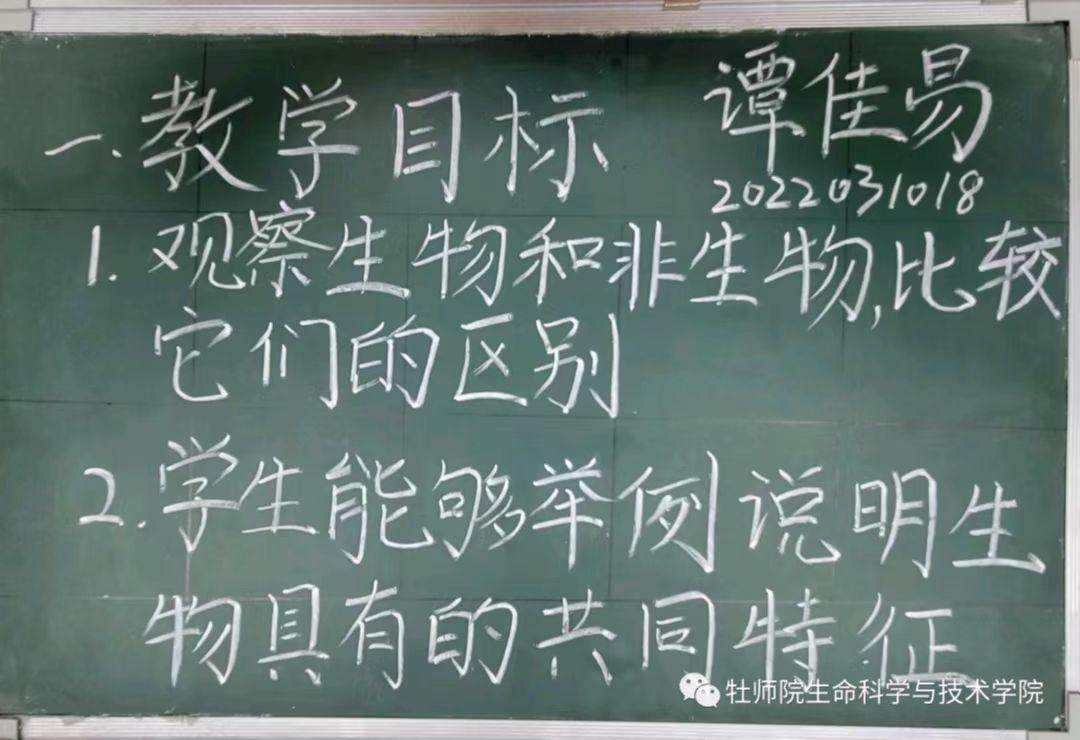 一.教学目标
谭佳易
2022031018
1.观察生物和非生物,比较
它们的区别
2.学生能够举例说明生
物具有的共同特征
牡师院生命科学与技术学院